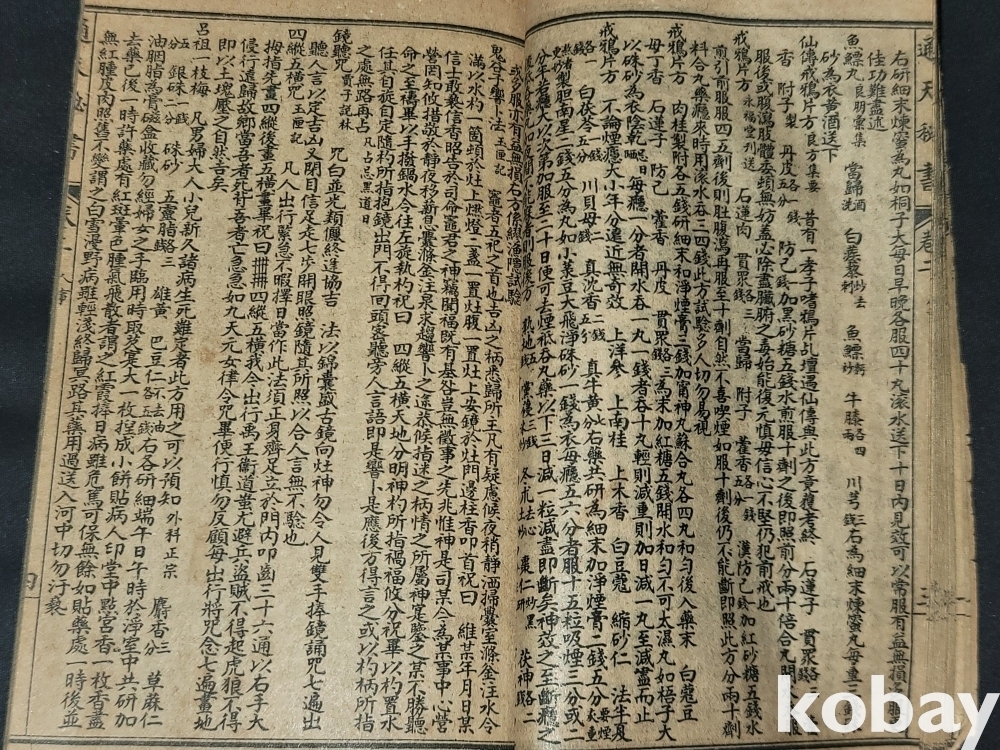 通天秘書 卷二
右研細末煉蜜為丸如桐子大每日早晚各服四十九滾水送下十日內見效可以常服有益無損
佳功難盡述
魚鰾丸 良朋彙集 當歸 酒洗 白蒺藜 炒去刺 魚鰾 牛膝 各四兩 川芎 三錢 右為細末煉蜜丸每重三
砂為衣黃酒送下
仙傳戒鴉片方 良方集要 昔有一孝子嗜鴉片乩壇遇仙傳與此方章獲考終 石蓮子 貫眾 各一錢
香 附子 製 丹皮 各一錢 防己 錢 加黑砂糖五錢水煎服十劑之後即照前方兩十倍合丸
服後或腹瀉腹體委頓無妨蓋必除盡臟腑之毒始能復元慎毋信心不堅仍犯前戒也
戒鴉片方 永福堂刊送 石蓮肉 貫眾 各三錢 當歸 附子 藿香 各一錢五分 漢防己 錢 加紅砂糖五錢水
煎引前服服四五劑後則肚腹瀉再服至十劑自然不喜吸煙如服十劑後仍不能斷即照此方分兩十劑
料合丸藥癮來時用滾水吞三四錢此方試驗多人切勿易視
戒鴉片方 肉桂製附各五錢研細末和淨煙膏三錢加甯神丸蘇合丸各四丸和勻後入藥末 白蔻豆
母丁香 石蓮子 防己 藿香 丹皮 貫眾 各三錢 為末加紅糖五錢開水和勻不可太濕丸如梧子大
以硃砂為衣陰乾晒 每癮一分開水吞九丸一錢者吞十九丸輕則減重則加日減一丸至減盡而止
戒鴉片方 不論煙癮大小年分遠近無奇效 上洋參 上南桂 上木香 白豆蔻 縮砂仁 法半夏
各一錢 白茯苓 一錢五分 川貝母 二錢 真沈香 五分 真牛黃 此右藥共研為細末加淨煙膏二錢五分
製胆南星二錢五分為丸如小菉豆大飛淨硃砂一錢為衣每癮五六分者服十五粒吸煙三分或二
分年若癮大以次第加服至二十日便可去煙祗吞丸藥以下三日減一粒減盡即斷矣神效之至斷癮之
或多服亦有益無損右方係
鬼谷子響卜法 玉匣記 竈者五祀之首也吉凶之柄悉歸所主凡有疑慮候夜稍靜洒掃爨室滌金注水令
滿以水杓一箇頓於灶上燃燈二盞一置灶腹一置灶上安鏡於灶門邊炷香叩首祝曰 維某年月日某
信士敢爇信香昭告於司命竈君之神竊聞福既有基咎豈無徵事之先兆惟神是司某今為某事中心營
營罔知攸措敬於靜夜移薪息爨滌金注泉求趨響卜之途恭候指迷之柄情之所屬神寔鑒之某不勝聽
命之至禱畢以手撥鍋水令往左旋執杓祝曰 四縱五橫天地分明神杓所指禍福攸分祝畢以杓置水
任其自旋自定隨杓所指抱鏡出門不得回頭密聽旁人言語即是響卜是應後方得言之或以杓柄所指
之處無路再占 凡占忌黑道日
鏡聽咒 賈子說林 咒曰並光類儷終逢協吉 法以錦囊盛古鏡向灶神勿令人見雙手捧鏡誦咒七遍出
聽人言以定吉凶又閉目信足走七步開眼照鏡隨其所照以合人言無不驗也
四縱五橫咒 玉匣記 凡人出行緊急不暇擇日當作此法須正身齊足立於門內叩齒三十六通以右手大
拇指先畫四縱後畫五橫畫畢祝曰卌卌四縱五橫我今出行禹王衞道蚩尤避兵盜賊不得起虎狼不得
侵行遠歸故鄉當吾者死背吾者亡急急如九天元女律令咒畢便行慎勿反顧每出行將咒念七遍畫地
即以土塊壓之自然吉矣
呂祖一枝梅 凡男婦大人小兒新久諸病生死難定者此方用之可以預知 外科正宗 麝香 三分 萆蔴仁
五分 銀硃 一錢二分 硃砂 五靈脂 各三錢 雄黃 巴豆仁 各五錢 不去油 右各研細端午日午時於淨室中共研加
油胭脂為膏磁盒收藏勿經婦女之手臨用時取芡實大一枚揑成小餅貼病人印堂中點官香一枚香盡
去藥已後一時許藥處有紅斑暈色腫氣飛散者謂之紅霞捧日病雖危篤可保無餘如貼藥處一時後並
無紅腫皮肉照舊不變謂之白雪漫野病雖輕淺終歸冥路其藥用過送入河中切勿汙褻
kobay